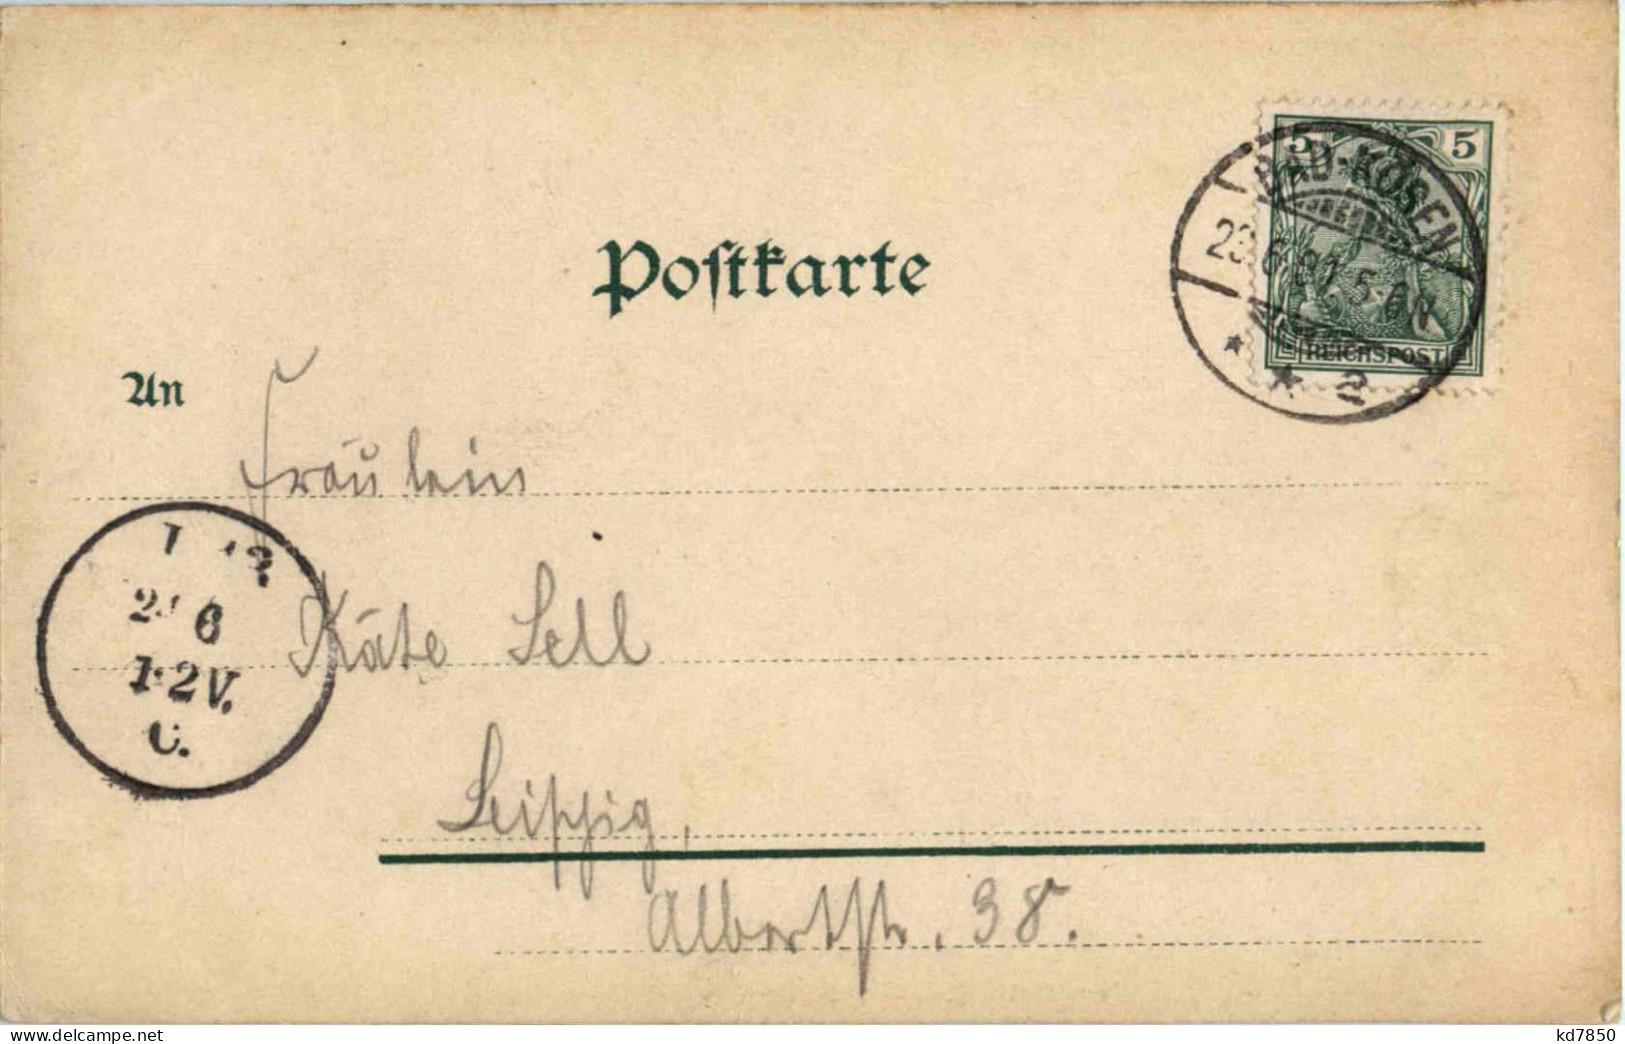 Postkarte
5 5
BAD-KÖSEN
23.6. 5-6N
REICHSPOST
* * 2
An
Fräulein
Käte Sell
Leipzig,
Albertstr. 38.
6
1-2V.
delcampe.net
kd7850